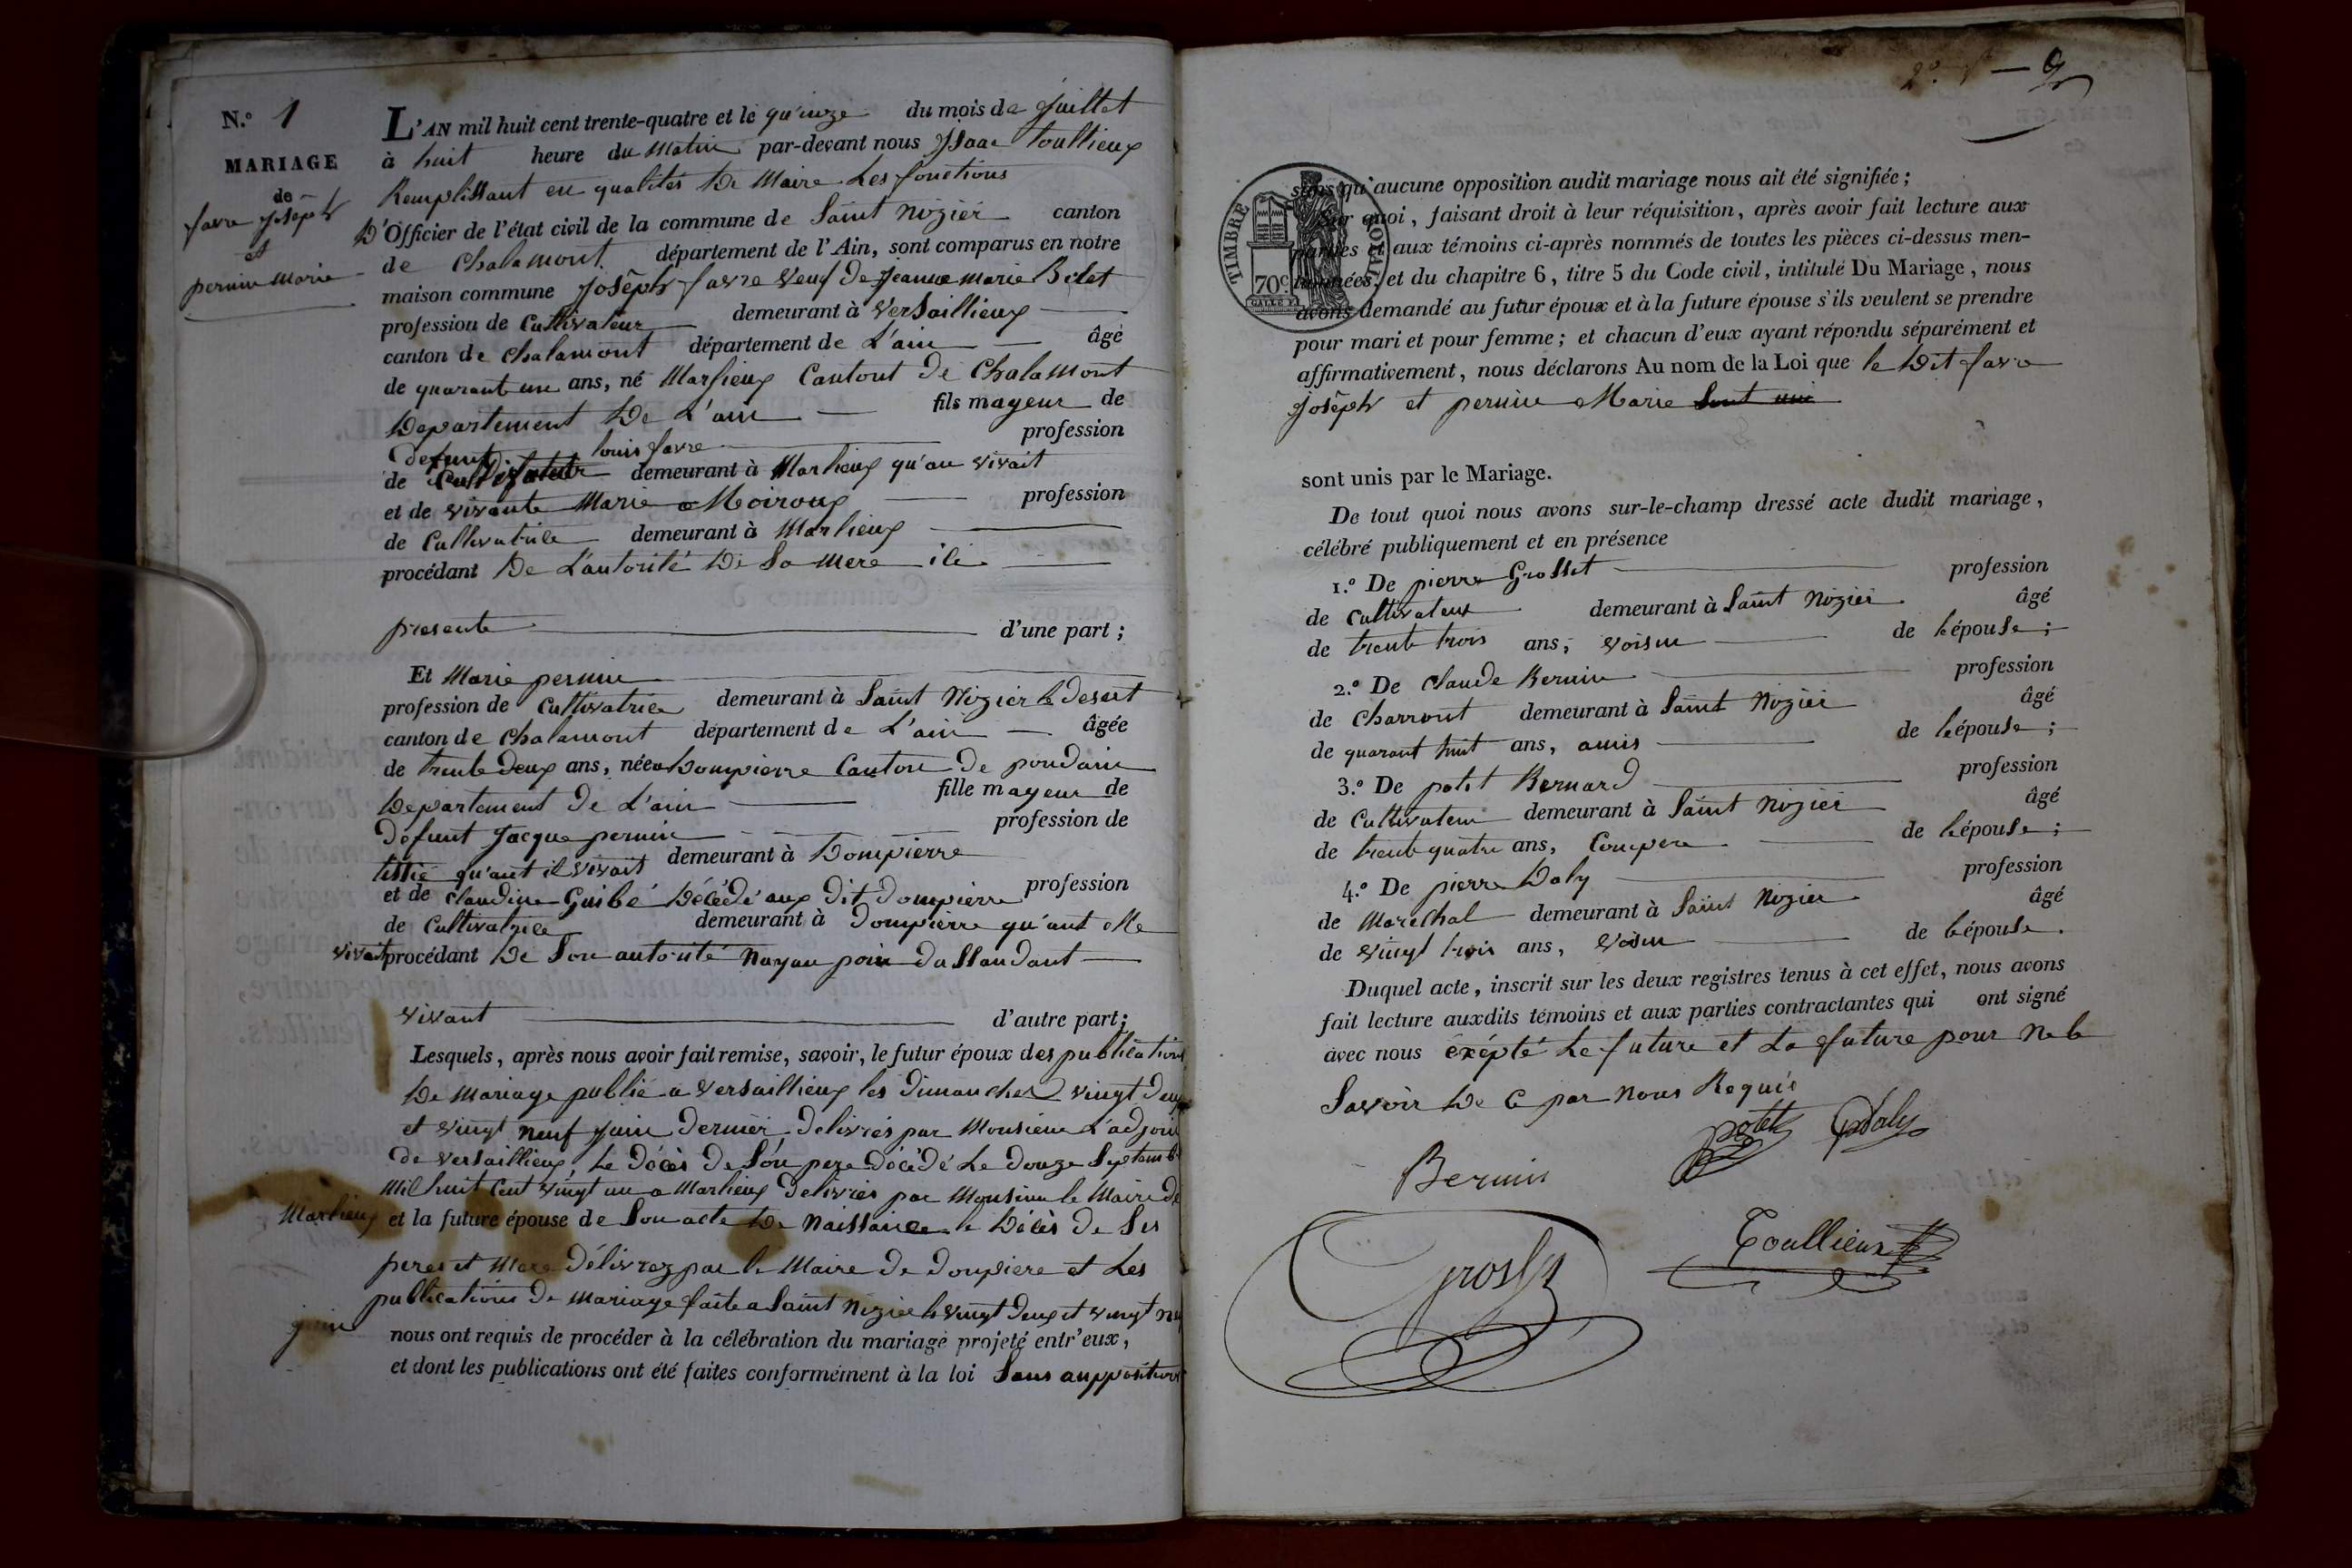 N.º 1
MARIAGE
de
favre Joseph
et
pernin Marie
L'AN mil huit cent trente-quatre et le quinze du mois de Juillet
à huit heure du Matin par-devant nous Isaac toullieux
Remplissant en qualités De Maire Les fonctions
D'Officier de l'état civil de la commune de Saint Nizier canton
de Chalamont département de l'Ain, sont comparus en notre
maison commune Joseph favre veuf de Jeanne marie
profession de Cultivateur demeurant à Versaillieux
canton de Chalamont département de L'ain âgé
de quarant un ans, né Marlieux Cantont De Chalamont
Departement De L'ain fils mayeur de
defunt louis favre profession
de demeurant à Marlieux qu'an vivait
et de vivante Marie Moiroux profession
de Cultivatrice demeurant à Marlieux
procédant De L'autorité De Sa Mere ici
presente d'une part ;
Et Marie pernin
profession de Cultivatrice demeurant à Saint Nizier le desert
canton de Chalamont département de L'ain âgée
de trente deux ans, née a Dompierre Canton De pondain
Departement De L'ain fille mayeur de
Defunt Jacque pernin profession de
tissié qu'ant il vivait demeurant à Dompierre
et de Claudine Guibé Décédé aux Dit Dompierre profession
de Cultivatrice demeurant à Dompierre qu'ant elle
vivait procédant De Son autorité Nayan poin Dassandant
vivant d'autre part ;
Lesquels, après nous avoir fait remise, savoir, le futur époux des publication
De Mariage publié a Versaillieux les Dimanches vingt Deux
et vingt neuf Juin Dernier Delivrés par Monsieur L'adjoin
de Versaillieux, Le Décès De Son pere Décédé Le Douze Septemb
Mil huit Cent vingt un a Marlieux Delivrés par Monsieur le Maire De
Marlieux et la future épouse de Son acte De Naissance le Décès De Ses
peres et Mere Délivrez par le Maire De Dompiere et Les
publications De Mariage faite a Saint Nizier le vingt Deux et vingt neu
juin nous ont requis de procéder à la célébration du mariage projeté entr'eux,
et dont les publications ont été faites conformément à la loi Sans auppositions
TIMBRE ROYAL
70c
sans qu'aucune opposition audit mariage nous ait été signifiée ;
Sur quoi, faisant droit à leur réquisition, après avoir fait lecture aux
parties et aux témoins ci-après nommés de toutes les pièces ci-dessus men-
tionnées, et du chapitre 6, titre 5 du Code civil, intitulé Du Mariage, nous
avons demandé au futur époux et à la future épouse s'ils veulent se prendre
pour mari et pour femme ; et chacun d'eux ayant répondu séparément et
affirmativement, nous déclarons Au nom de la Loi que le Dit favre
Joseph et pernin Marie Sont uni
sont unis par le Mariage.
De tout quoi nous avons sur-le-champ dressé acte dudit mariage,
célébré publiquement et en présence
1.º De pierre Grosset profession
de Cultivateur demeurant à Saint Nizier âgé
de trente trois ans, voisin de l'épouse ;
2.º De Claude Bernin profession
de Charront demeurant à Saint Nizier âgé
de quarant huit ans, amis de l'épouse ;
3.º De potet Bernard profession
de Cultivateur demeurant à Saint Nizier âgé
de trente quatre ans, Compere de l'épouse ;
4.º De pierre Daly profession
de Marechal demeurant à Saint Nizier âgé
de vingt trois ans, voisin de l'épouse.
Duquel acte, inscrit sur les deux registres tenus à cet effet, nous avons
fait lecture auxdits témoins et aux parties contractantes qui ont signé
avec nous éxépté Le future et La future pour Ne le
Savoir De Ce par Nous Requis
potet Daly
Bernin
Toullieux